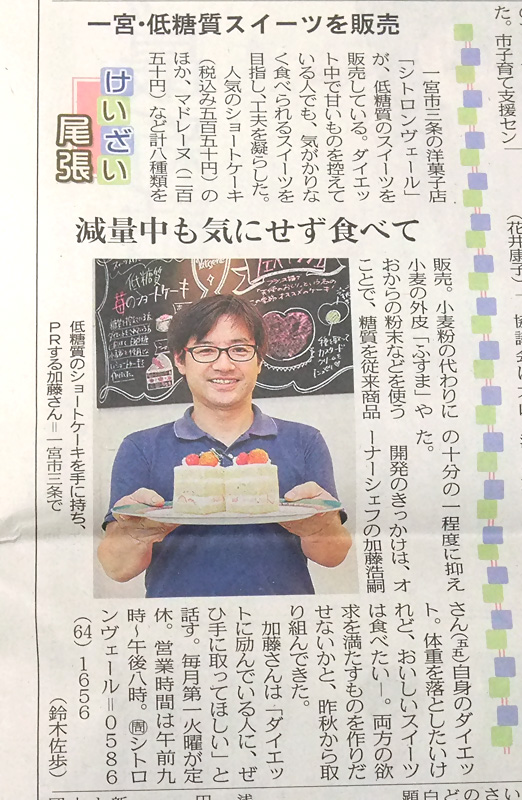 一宮・低糖質スイーツを販売
けいざい
尾張
一宮市三条の洋菓子店
「シトロンヴェール」
が、低糖質のスイーツを
販売している。ダイエッ
ト中で甘いものを控えて
いる人でも、気がかりな
く食べられるスイーツを
目指し、工夫を凝らした。
人気のショートケーキ
(税込み五百五十円)の
ほか、マドレーヌ(二百
五十円)など計八種類を
減量中も気にせず食べて
販売。小麦粉の代わりに
小麦の外皮「ふすま」や
おからの粉末などを使う
ことで、糖質を従来商品
の十分の一程度に抑え
た。
開発のきっかけは、オ
ーナーシェフの加藤浩嗣
低糖質
苺のショートケーキ
低糖質のショートケーキを手に持ち、
PRする加藤さん=一宮市三条で
さん(五五)自身のダイエッ
ト。体重を落としたいけ
れど、おいしいスイーツ
は食べたい―。両方の欲
求を満たすものを作りだ
せないかと、昨秋から取
り組んできた。
加藤さんは「ダイエッ
トに励んでいる人に、ぜ
ひ手に取ってほしい」と
話す。毎月第一火曜が定
休。営業時間は午前九
時~午後八時。㉄シトロ
ンヴェール=0586
(64)1656
(鈴木佐歩)
た。市子育て支援セン
(花井康子)